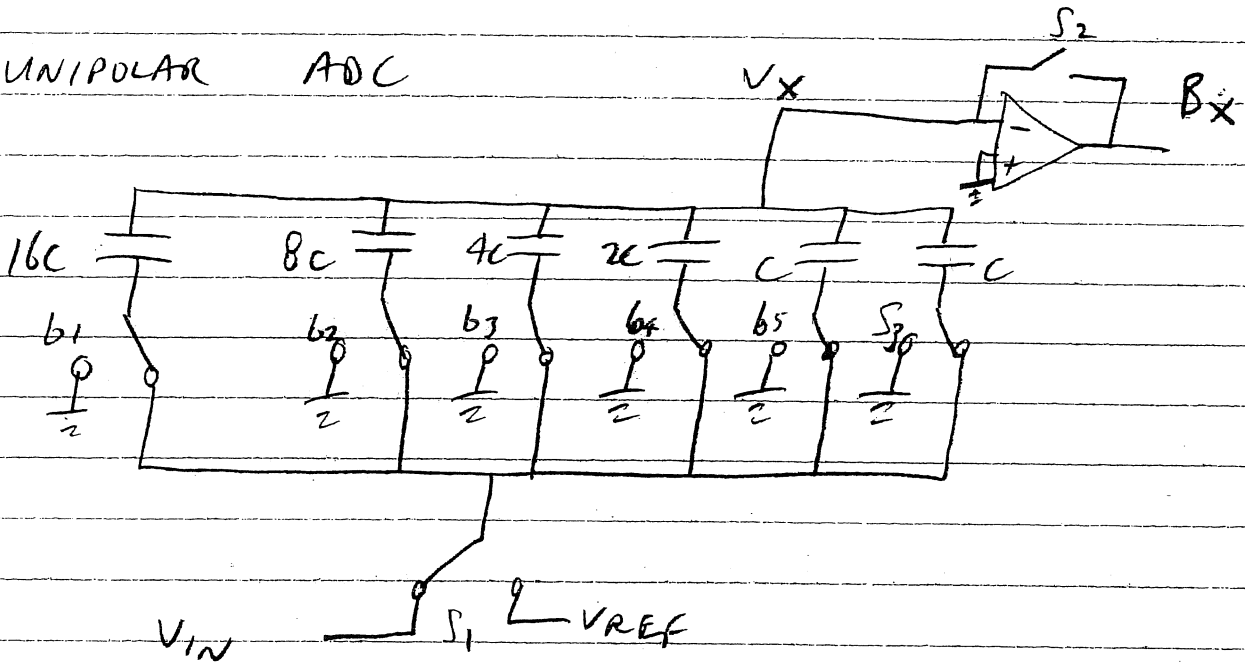 UNIPOLAR ADC
S2
VX
BX
-
+
16C
8C
4C
2C
C
C
b1
b2
b3
b4
b5
S3
VIN
S1
VREF